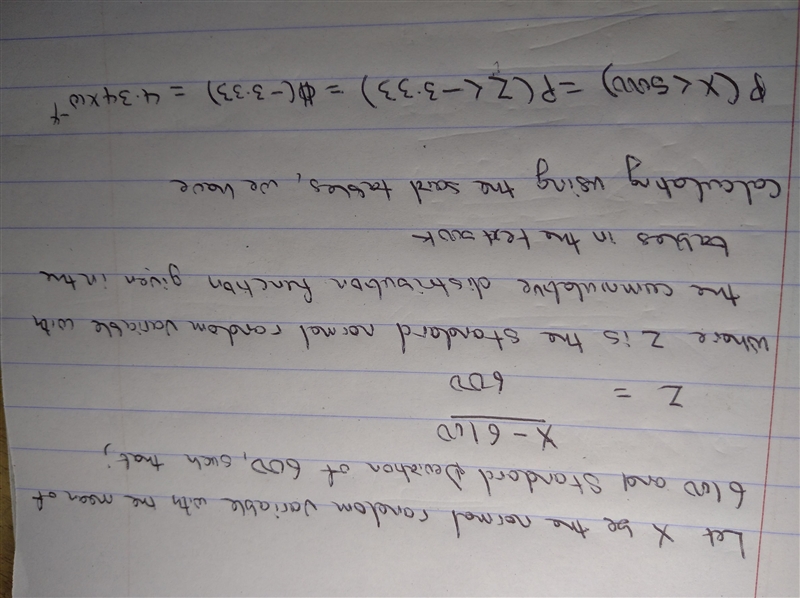 Let X be the normal random variable with the mean of
6100 and Standard Deviation of 600, such that;
X - 6100
Z =
600
where Z is the standard normal random variable with
the cummulative distribution function given in the
tables in the textbook
Calculating using the said tables, we have
P(X < 5000) = P(Z < -3.33) = Φ(-3.33) = 4.34x10⁻⁴